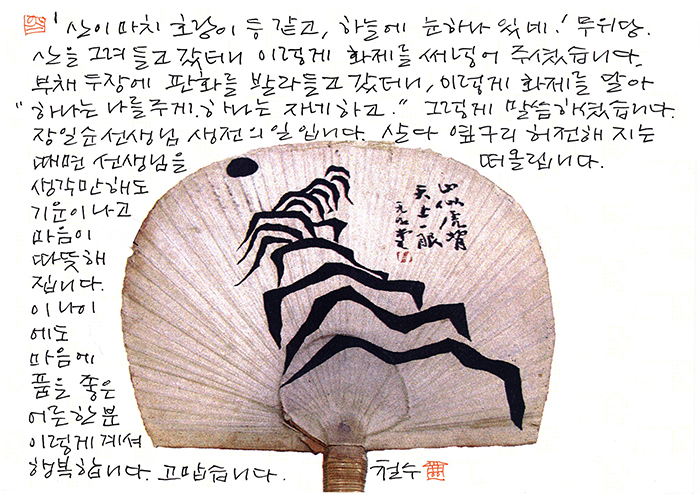 '산이 마치 호랑이 등 같고, 하늘에 눈하나 있네.' 무위당.
산을 그려 들고 갔더니 이렇게 화제를 써넣어 주셨습니다.
부채 두장에 판화를 발라들고 갔더니, 이렇게 화제를 달아
"하나는 나를주게. 하나는 자네하고." 그렇게 말씀하셨습니다.
장일순선생님 생전의 일입니다. 살다 옆구리 허전해 지는
때면 선생님을 떠올립니다.
생각만해도
기운이 나고
마음이
따뜻해
집니다.
이 나이
에도
마음에
품을 좋은
어른 한 분
이렇게 계셔
행복합니다. 고맙습니다. 철수
山似虎
天上一眼